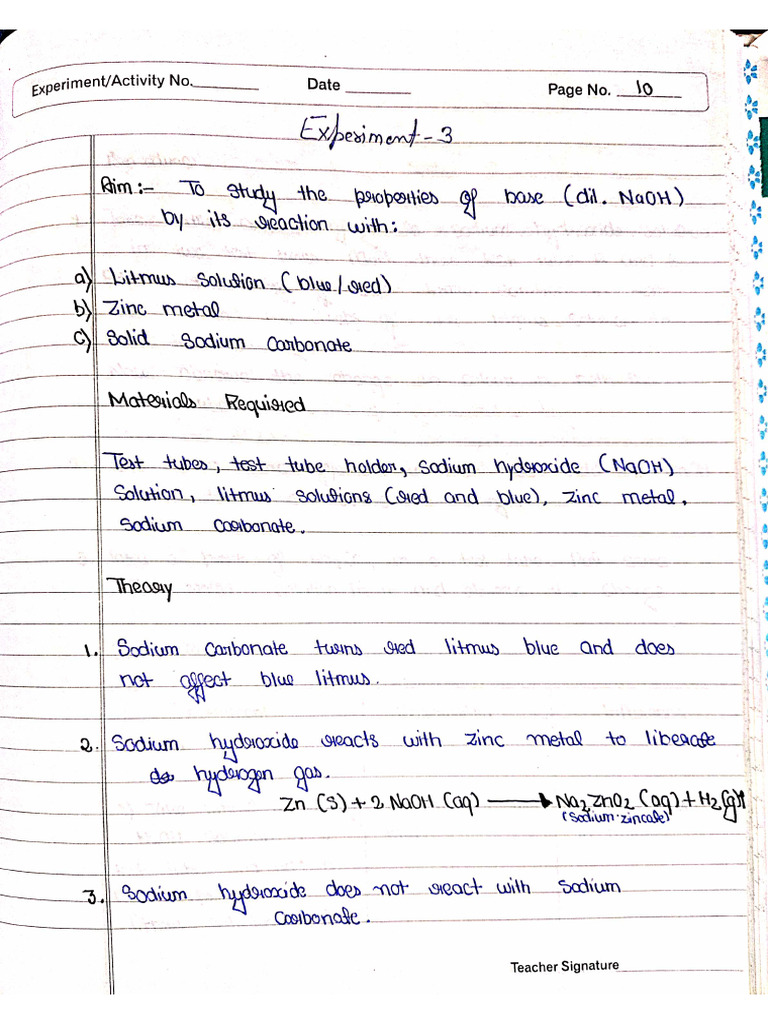 Experiment/Activity No. Date Page No. 10
Experiment - 3
Aim :- To study the properties of base (dil. NaOH)
by its reaction with:
a) Litmus solution (blue/red)
b) Zinc metal
c) Solid Sodium Carbonate
Materials Required
Test tubes, test tube holder, sodium hydroxide (NaOH)
solution, litmus solutions (red and blue), zinc metal,
sodium carbonate.
Theory
1. Sodium carbonate turns red litmus blue and does
not affect blue litmus.
2. Sodium hydroxide reacts with zinc metal to liberate
hydrogen gas.
Zn (s) + 2 NaOH (aq) ⟶ Na₂ZnO₂ (aq) + H₂(g)↑
(Sodium zincate)
3. Sodium hydroxide does not react with sodium
carbonate.
Teacher Signature